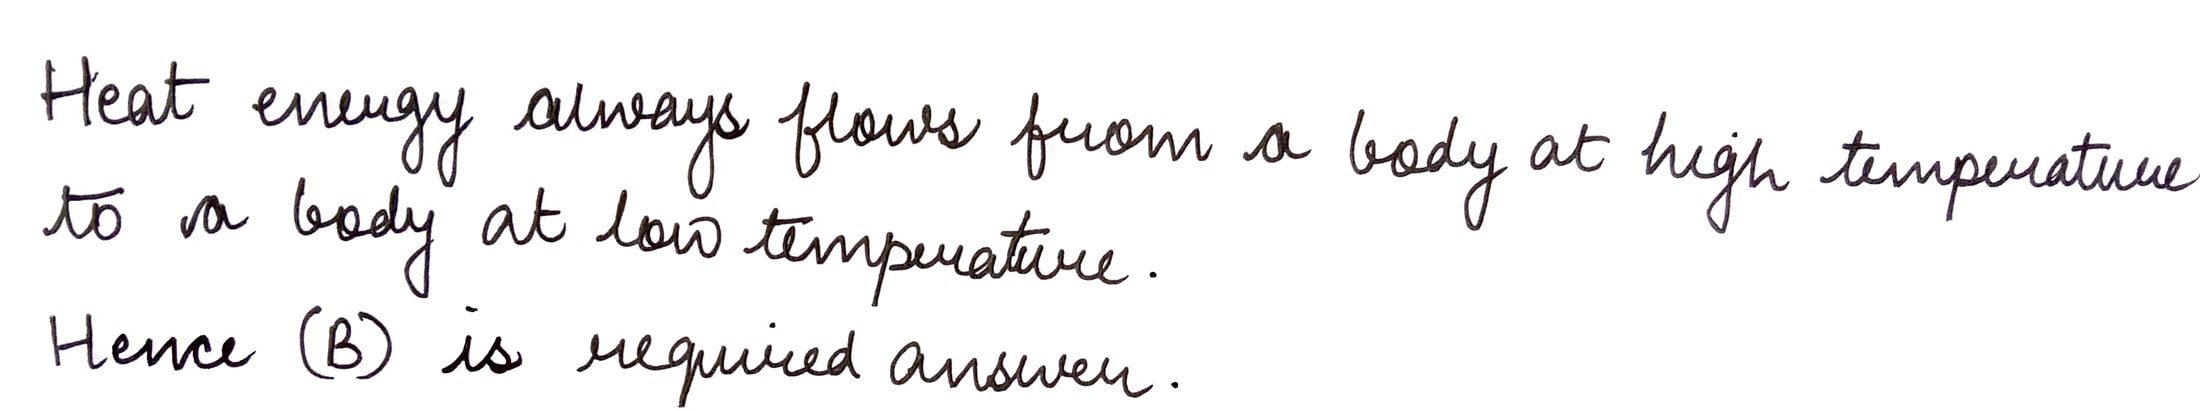 Heat energy always flows from a body at high temperature
to a body at low temperature.
Hence (B) is required answer.